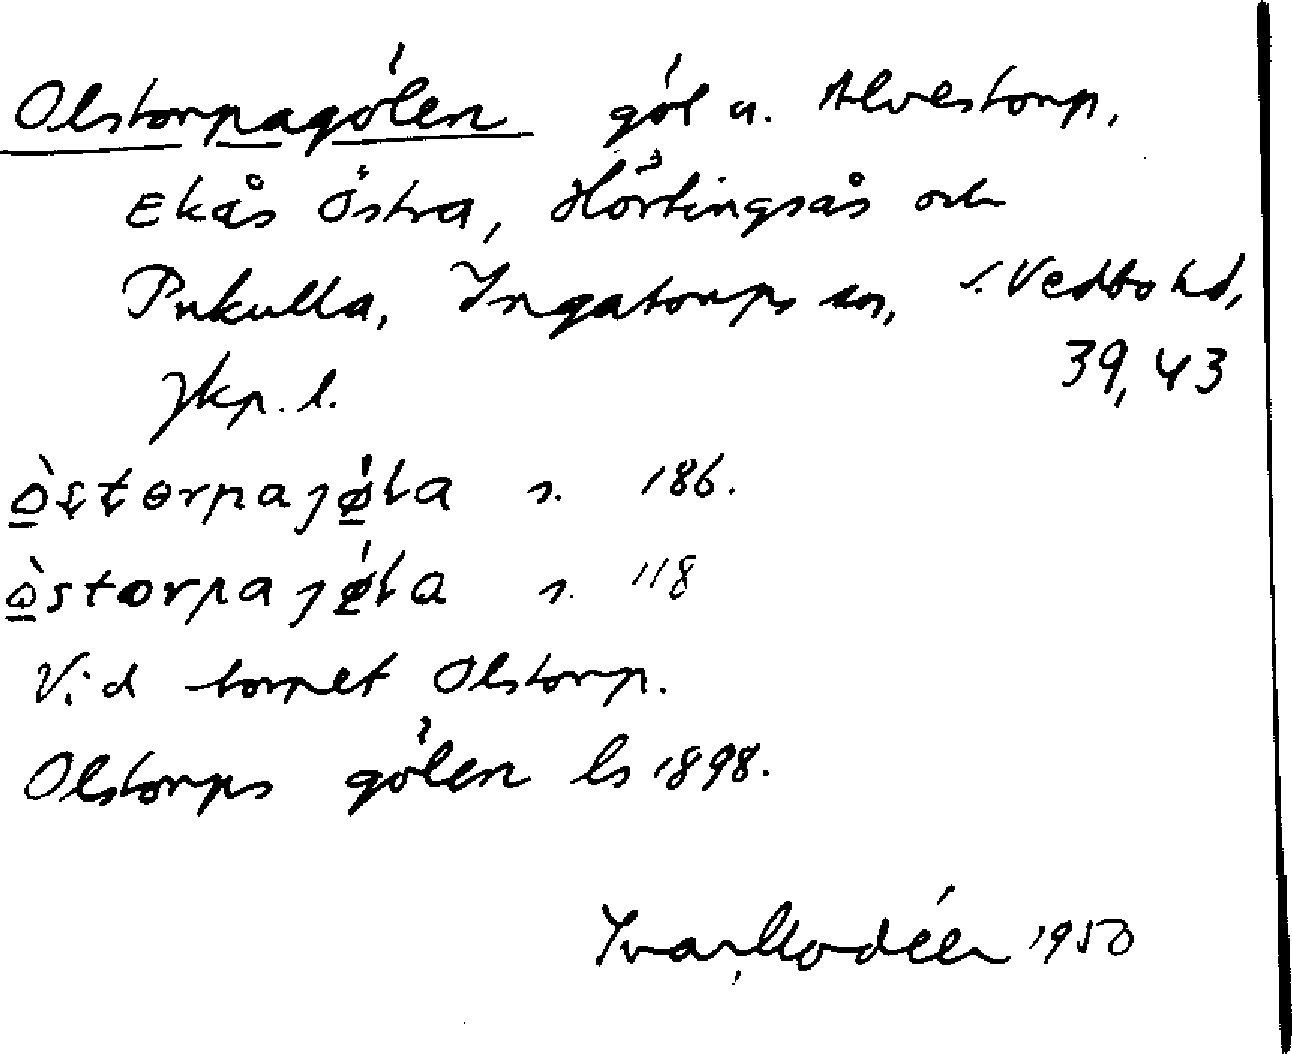 Olstorpagölen göl u. Alvestorp,
Ekås Östra, Hörtingsås och
Pukulla, Ingatorps sn, s. Vedbo hd,
Jkp. l. 39,43
s. 186.
s. 118
Vid torpet Olstorp.
Olstorps gölen ls 1898.
Ivar Modéer 1950